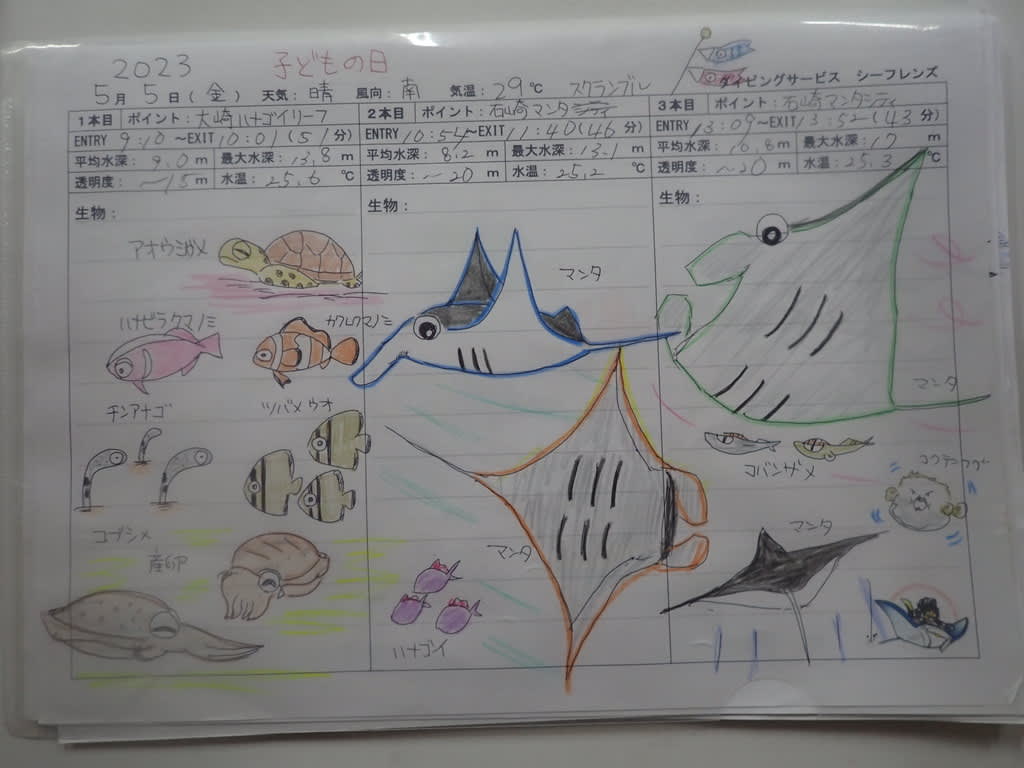 2023 子どもの日
ダイビングサービス シーフレンズ
5月 5日(金) 天気:晴 風向:南 気温:29℃ スクランブル
1本目 ポイント:大崎ハナゴイリーフ
ENTRY 9:10~EXIT 10:01(51分)
平均水深:9.0m 最大水深:13.8m
透明度:~15m 水温:25.6℃
生物:
アオウミガメ
ハナビラクマノミ
カクレクマノミ
チンアナゴ
ツバメウオ
コブシメ
産卵
2本目 ポイント:石崎マンタシティ
ENTRY 10:54~EXIT 11:40(46分)
平均水深:8.2m 最大水深:13.1m
透明度:~20m 水温:25.2℃
生物:
マンタ
マンタ
ハナゴイ
3本目 ポイント:石崎マンタシティ
ENTRY 13:09~EXIT 13:52(43分)
平均水深:6.8m 最大水深:17m
透明度:~20m 水温:25.3℃
生物:
マンタ
コバンザメ
コクテンフグ
マンタ